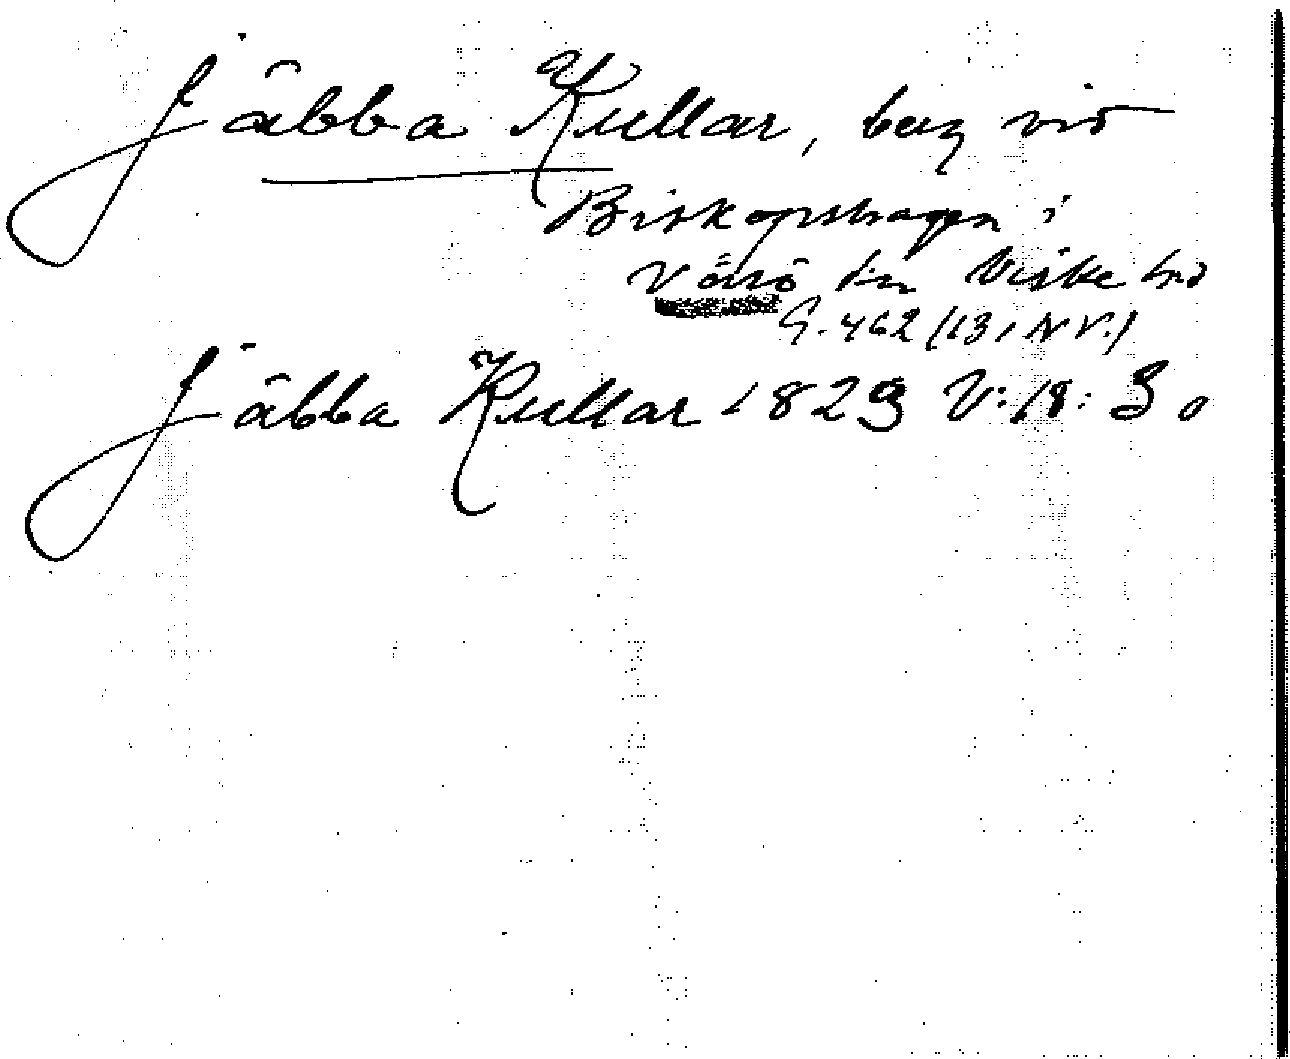 Jäbba Kullar, berg vid
Biskopshagen i
Värö sn Viske hd
G. 462 (13, NV.)
Jäbba Kullar 1823 V: 18: 30